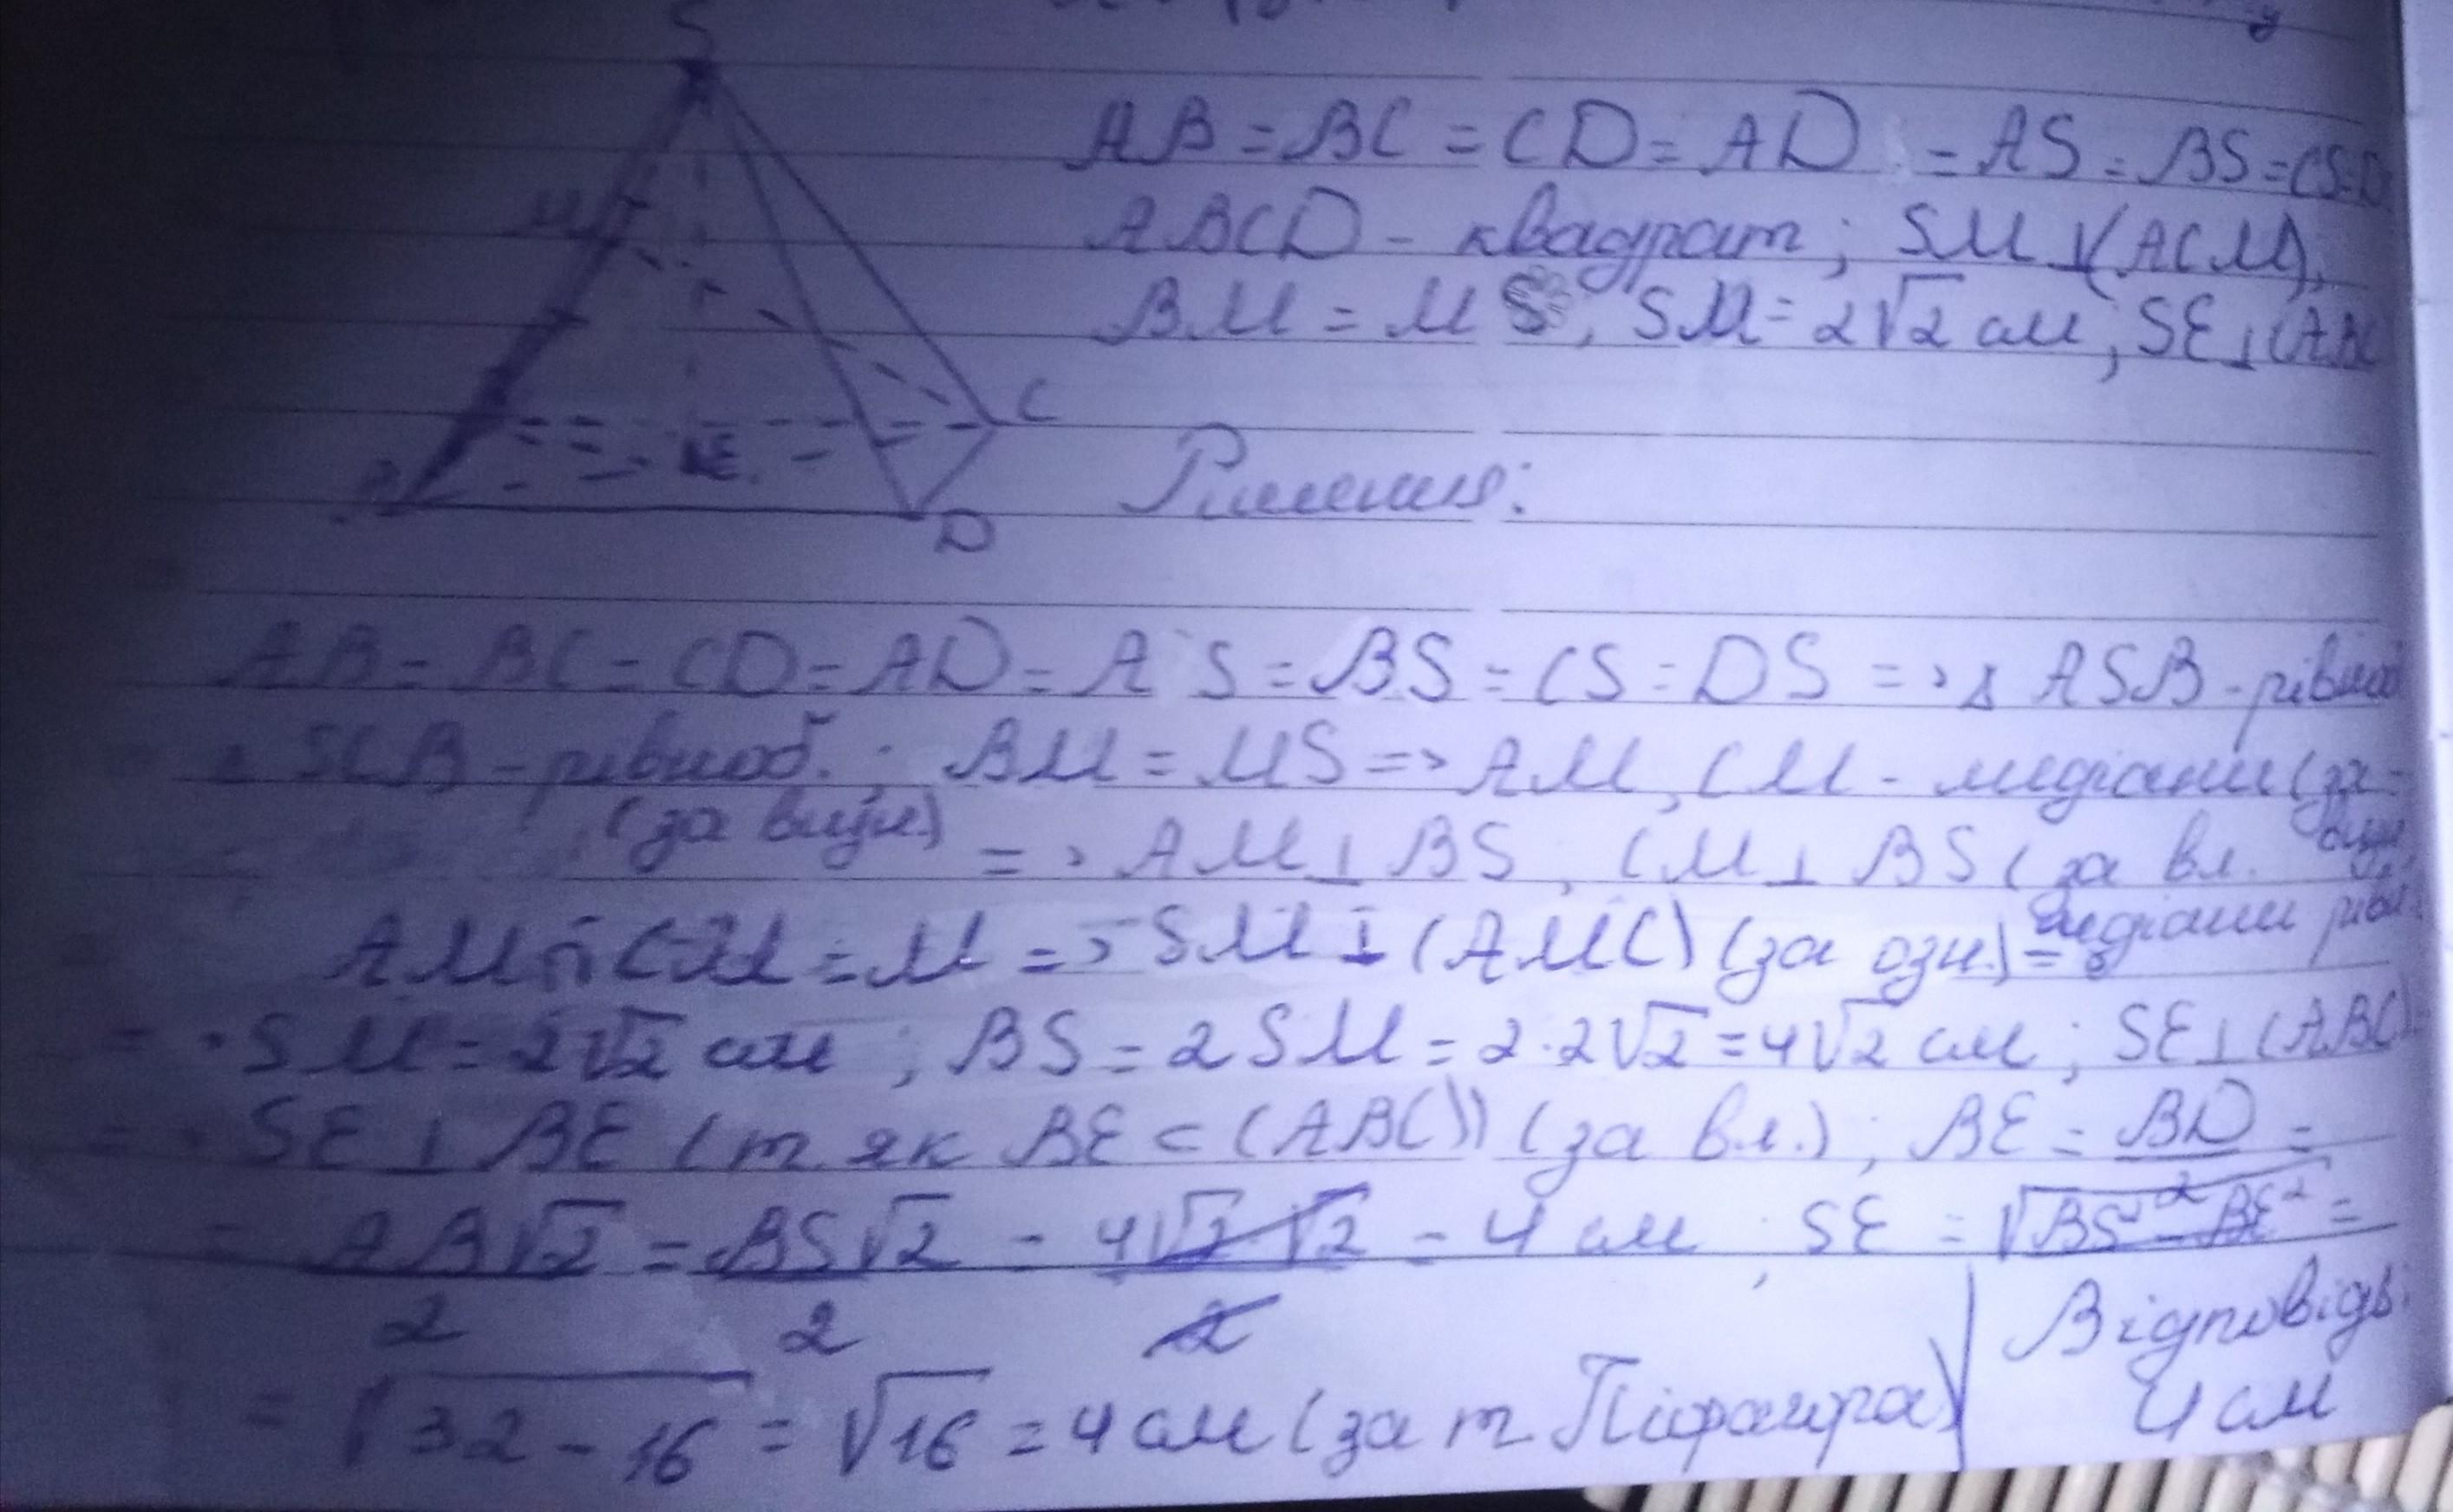 S
AB = BC = CD = AD = AS = BS = CS = D
M
ABCD - квадрат; SM ⊥ (ACM),
BM = MS, SM = 2√2 см; SE ⊥ (ABC
C
E
A
D
Рішення:
AB = BC = CD = AD = AS = BS = CS = DS => Δ ASB - рівноб
Δ SCB - рівноб. ; BM = MS => AM, CM - медіани (за
(за визн.) => AM ⊥ BS, CM ⊥ BS (за вл. визн.
медіани рівн.
AM ∩ CM = M => SM ⊥ (AMC) (за озн.) =>
=> SM = 2√2 см ; BS = 2SM = 2·2√2 = 4√2 см ; SE ⊥ (ABC)
=> SE ⊥ BE (т як BE ⊂ (ABC)) (за вл.) ; BE = BD/2 =
= AB√2/2 = BS√2/2 = 4√2·√2/2 = 4 см ; SE = √BS² - BE² =
= √32 - 16 = √16 = 4 см (за т. Піфагора)
Відповідь:
4 см